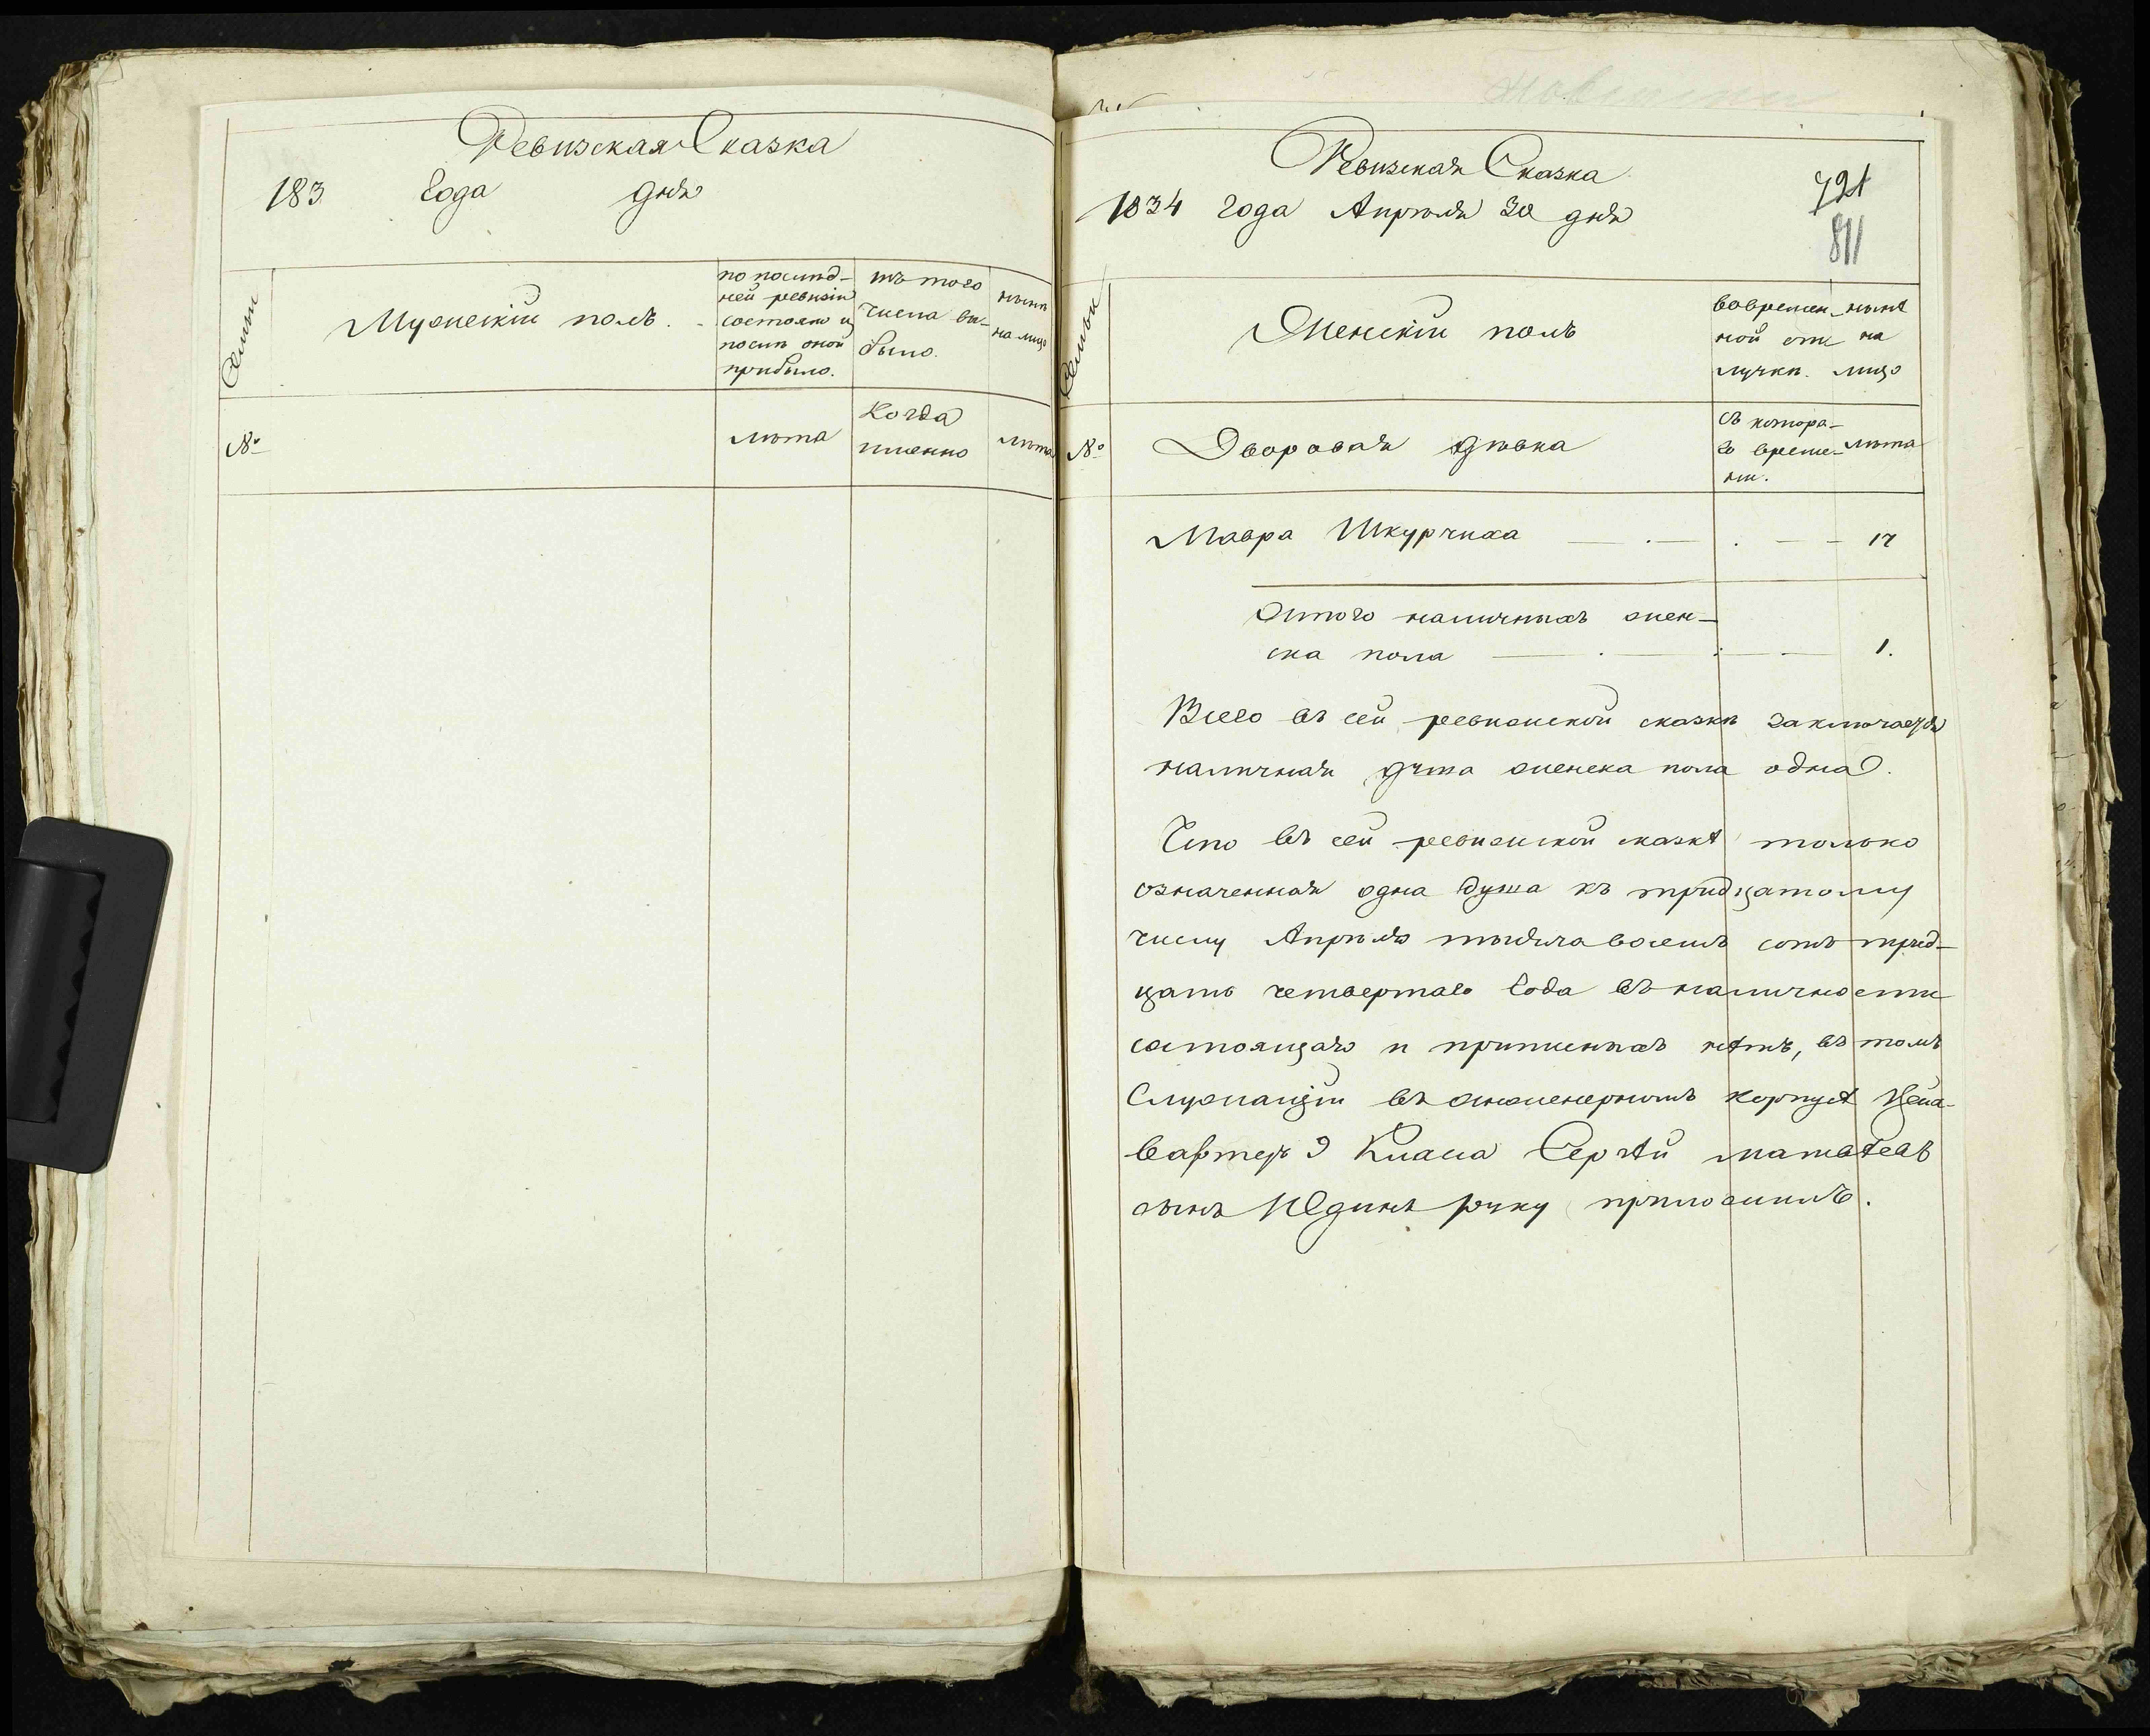 Ревизская Сказка
183 Года дня
Семьи
Мужескiй полъ.
по послѣд-
ней ревизiи
состояло и
послѣ оной
прибыло.
изъ того
числа вы-
было.
нынѣ
на лицо
№
лѣта
Когда
именно
лѣта
Ревизская Сказка
1834 года Апрѣля 30 дня
791
811
Семьи
Женскiй полъ
вовремен-
ной отъ
лучкѣ.
нынѣ
на
лицо
№
Дворовая дѣвка
съ котора-
го време-
ни.
лѣта
Мавра Шкурчиха 17
Итого наличныхъ жен-
ска пола 1.
Всего въ сей ревижской сказкѣ заключается
наличная душа женска пола одна.
Что въ сей ревижской сказкѣ только
означенная одна душа къ тридцатому
числу Апрѣля тысяча восемь сотъ трид-
цать четвертаго Года въ наличности
состоящаго и прописныхъ нѣтъ, въ томъ
Служащiй въ Инженерномъ корпусѣ Цейх-
вахтеръ 9 Класа Сергѣй Матвѣевъ
сынъ Юдинъ руку приложилъ.